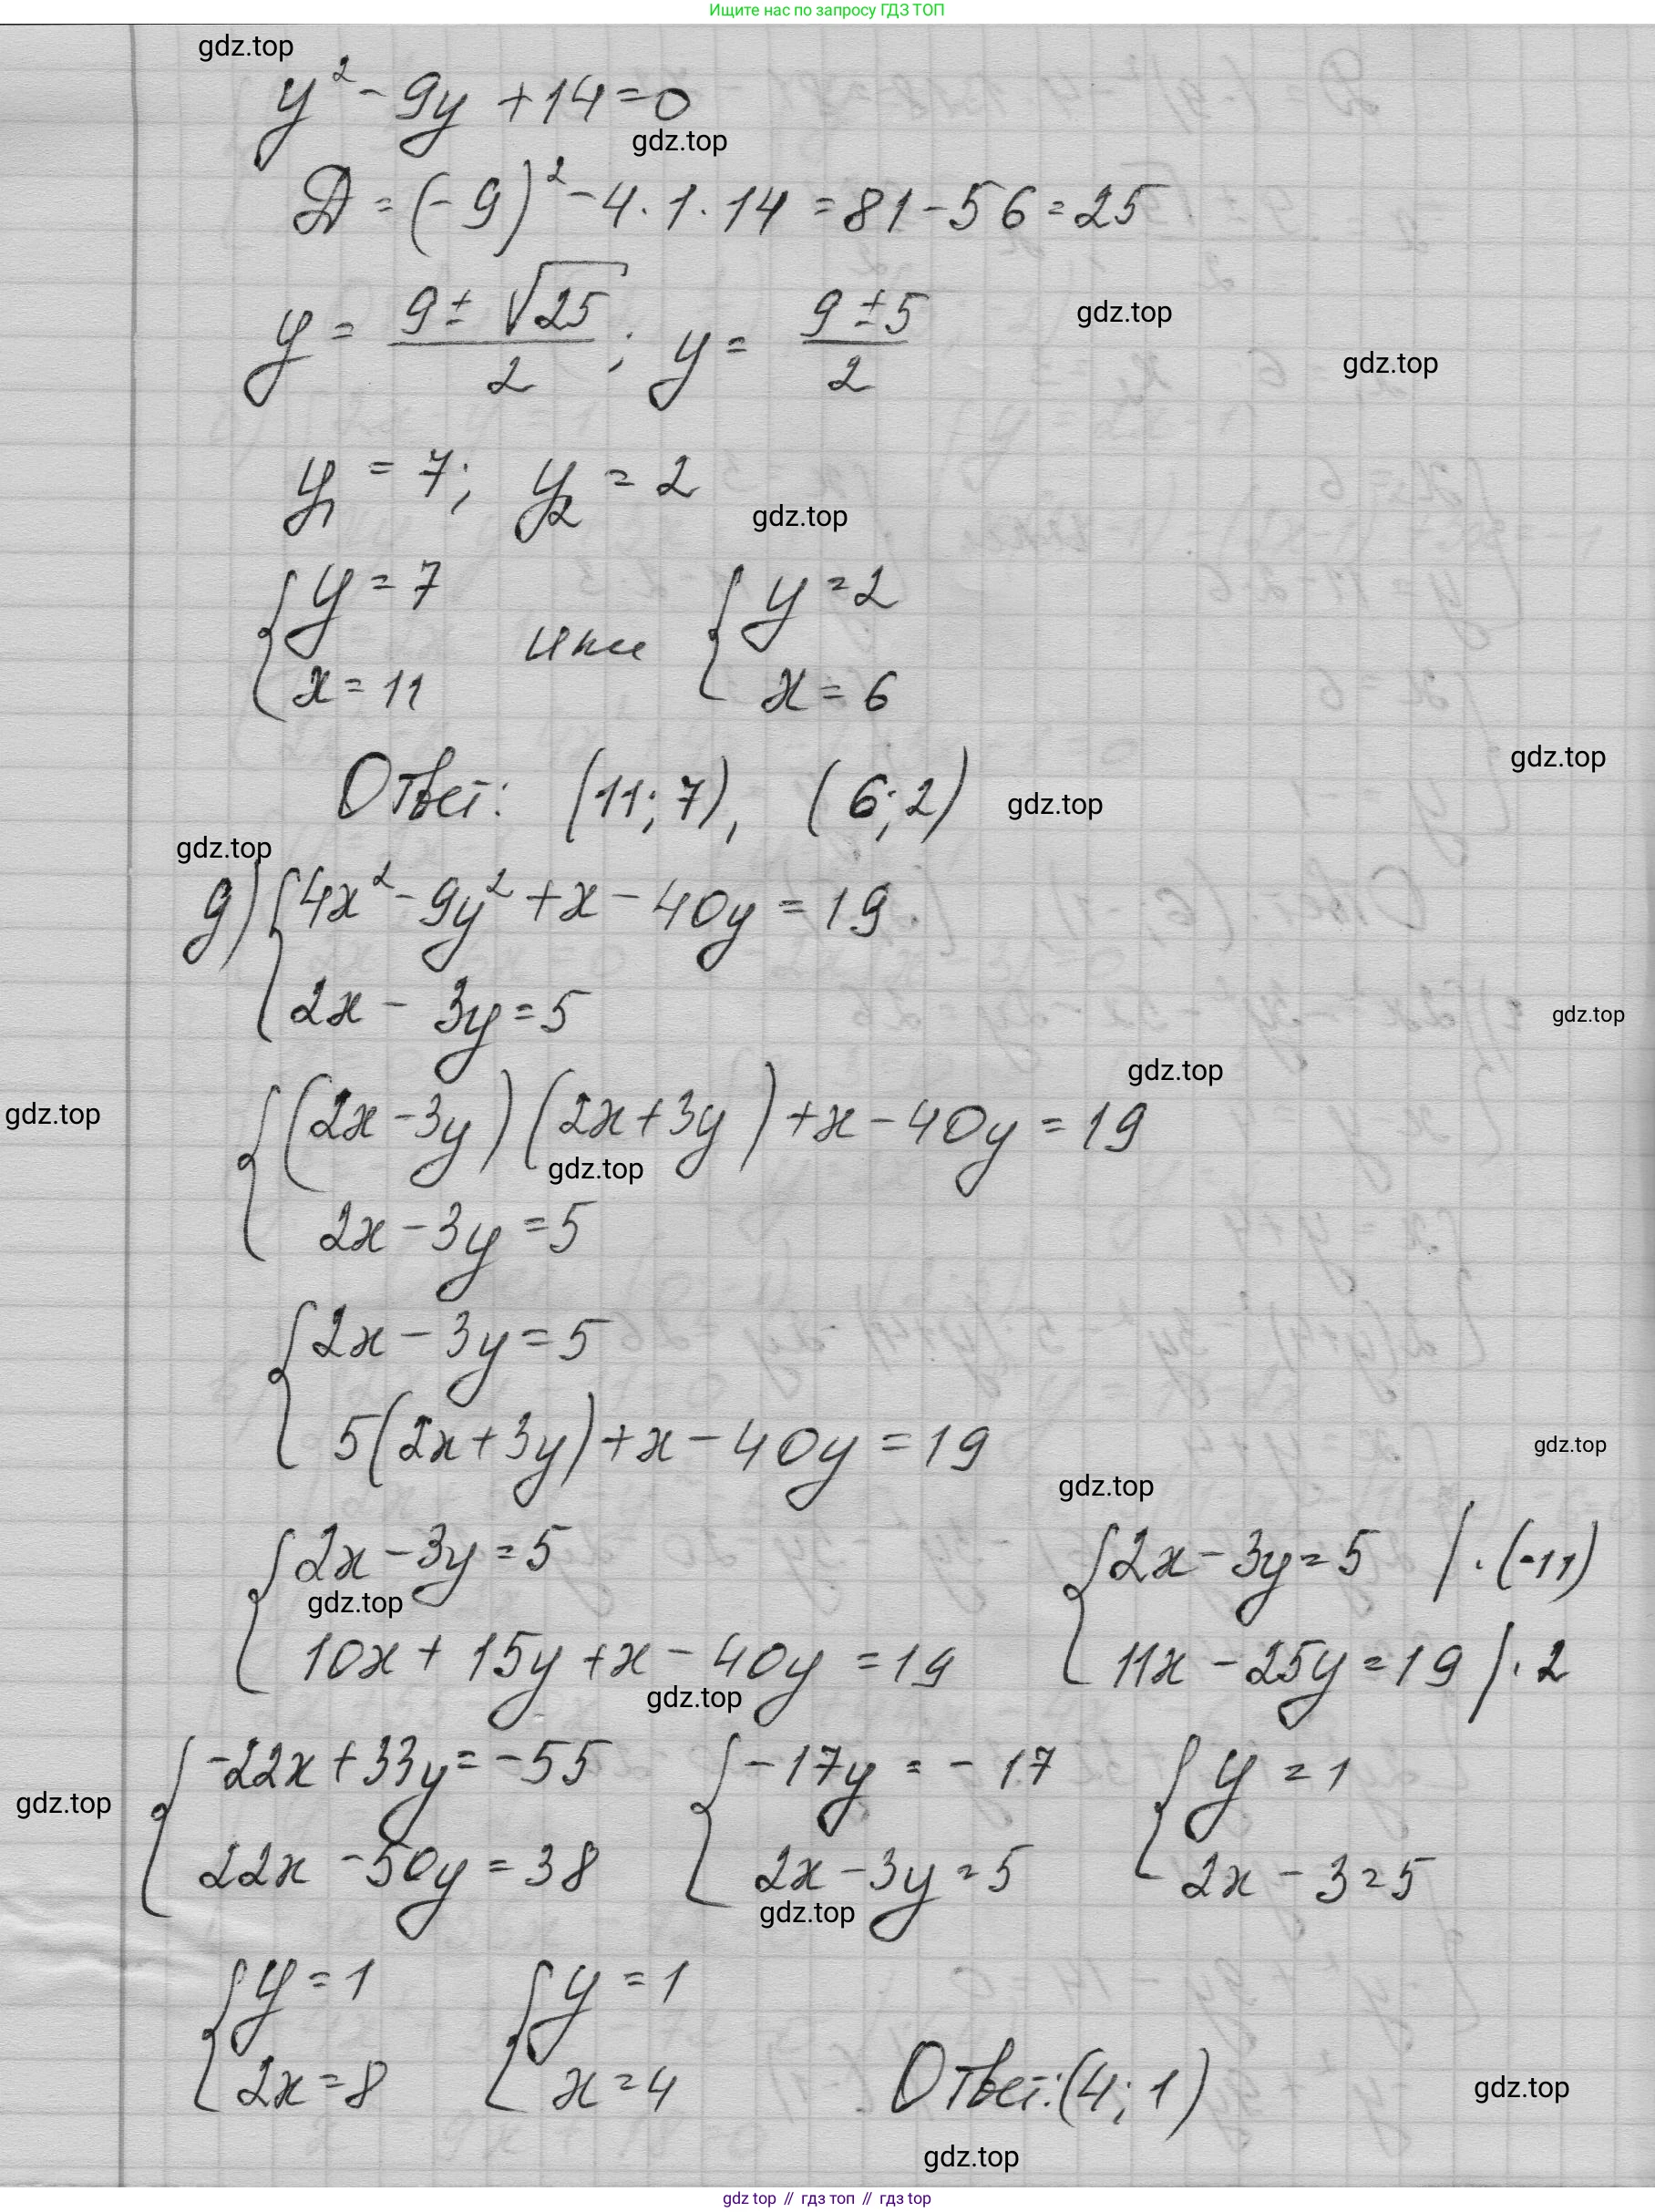 Ищите нас по запросу ГДЗ ТОП
gdz.top
y² - 9y + 14 = 0
gdz.top
D = (-9)² - 4 · 1 · 14 = 81 - 56 = 25
y = (9 ± √25)/2 ; y = (9 ± 5)/2
gdz.top
gdz.top
y₁ = 7; y₂ = 2
gdz.top
{ y = 7 или { y = 2
x = 11 x = 6
gdz.top
Ответ: (11; 7), (6; 2)
gdz.top
gdz.top
g) { 4x² - 9y² + x - 40y = 19
2x - 3y = 5
gdz.top
gdz.top
gdz.top
{ (2x - 3y)(2x + 3y) + x - 40y = 19
gdz.top
2x - 3y = 5
{ 2x - 3y = 5
5(2x + 3y) + x - 40y = 19
gdz.top
gdz.top
{ 2x - 3y = 5 { 2x - 3y = 5 / · (-11)
gdz.top
10x + 15y + x - 40y = 19 11x - 25y = 19 / · 2
gdz.top
{ -22x + 33y = -55 { -17y = -17 { y = 1
gdz.top
22x - 50y = 38 2x - 3y = 5 2x - 3 = 5
gdz.top
{ y = 1 { y = 1
2x = 8 x = 4 Ответ: (4; 1)
gdz.top
gdz.top
gdz top // гдз топ // гдз top